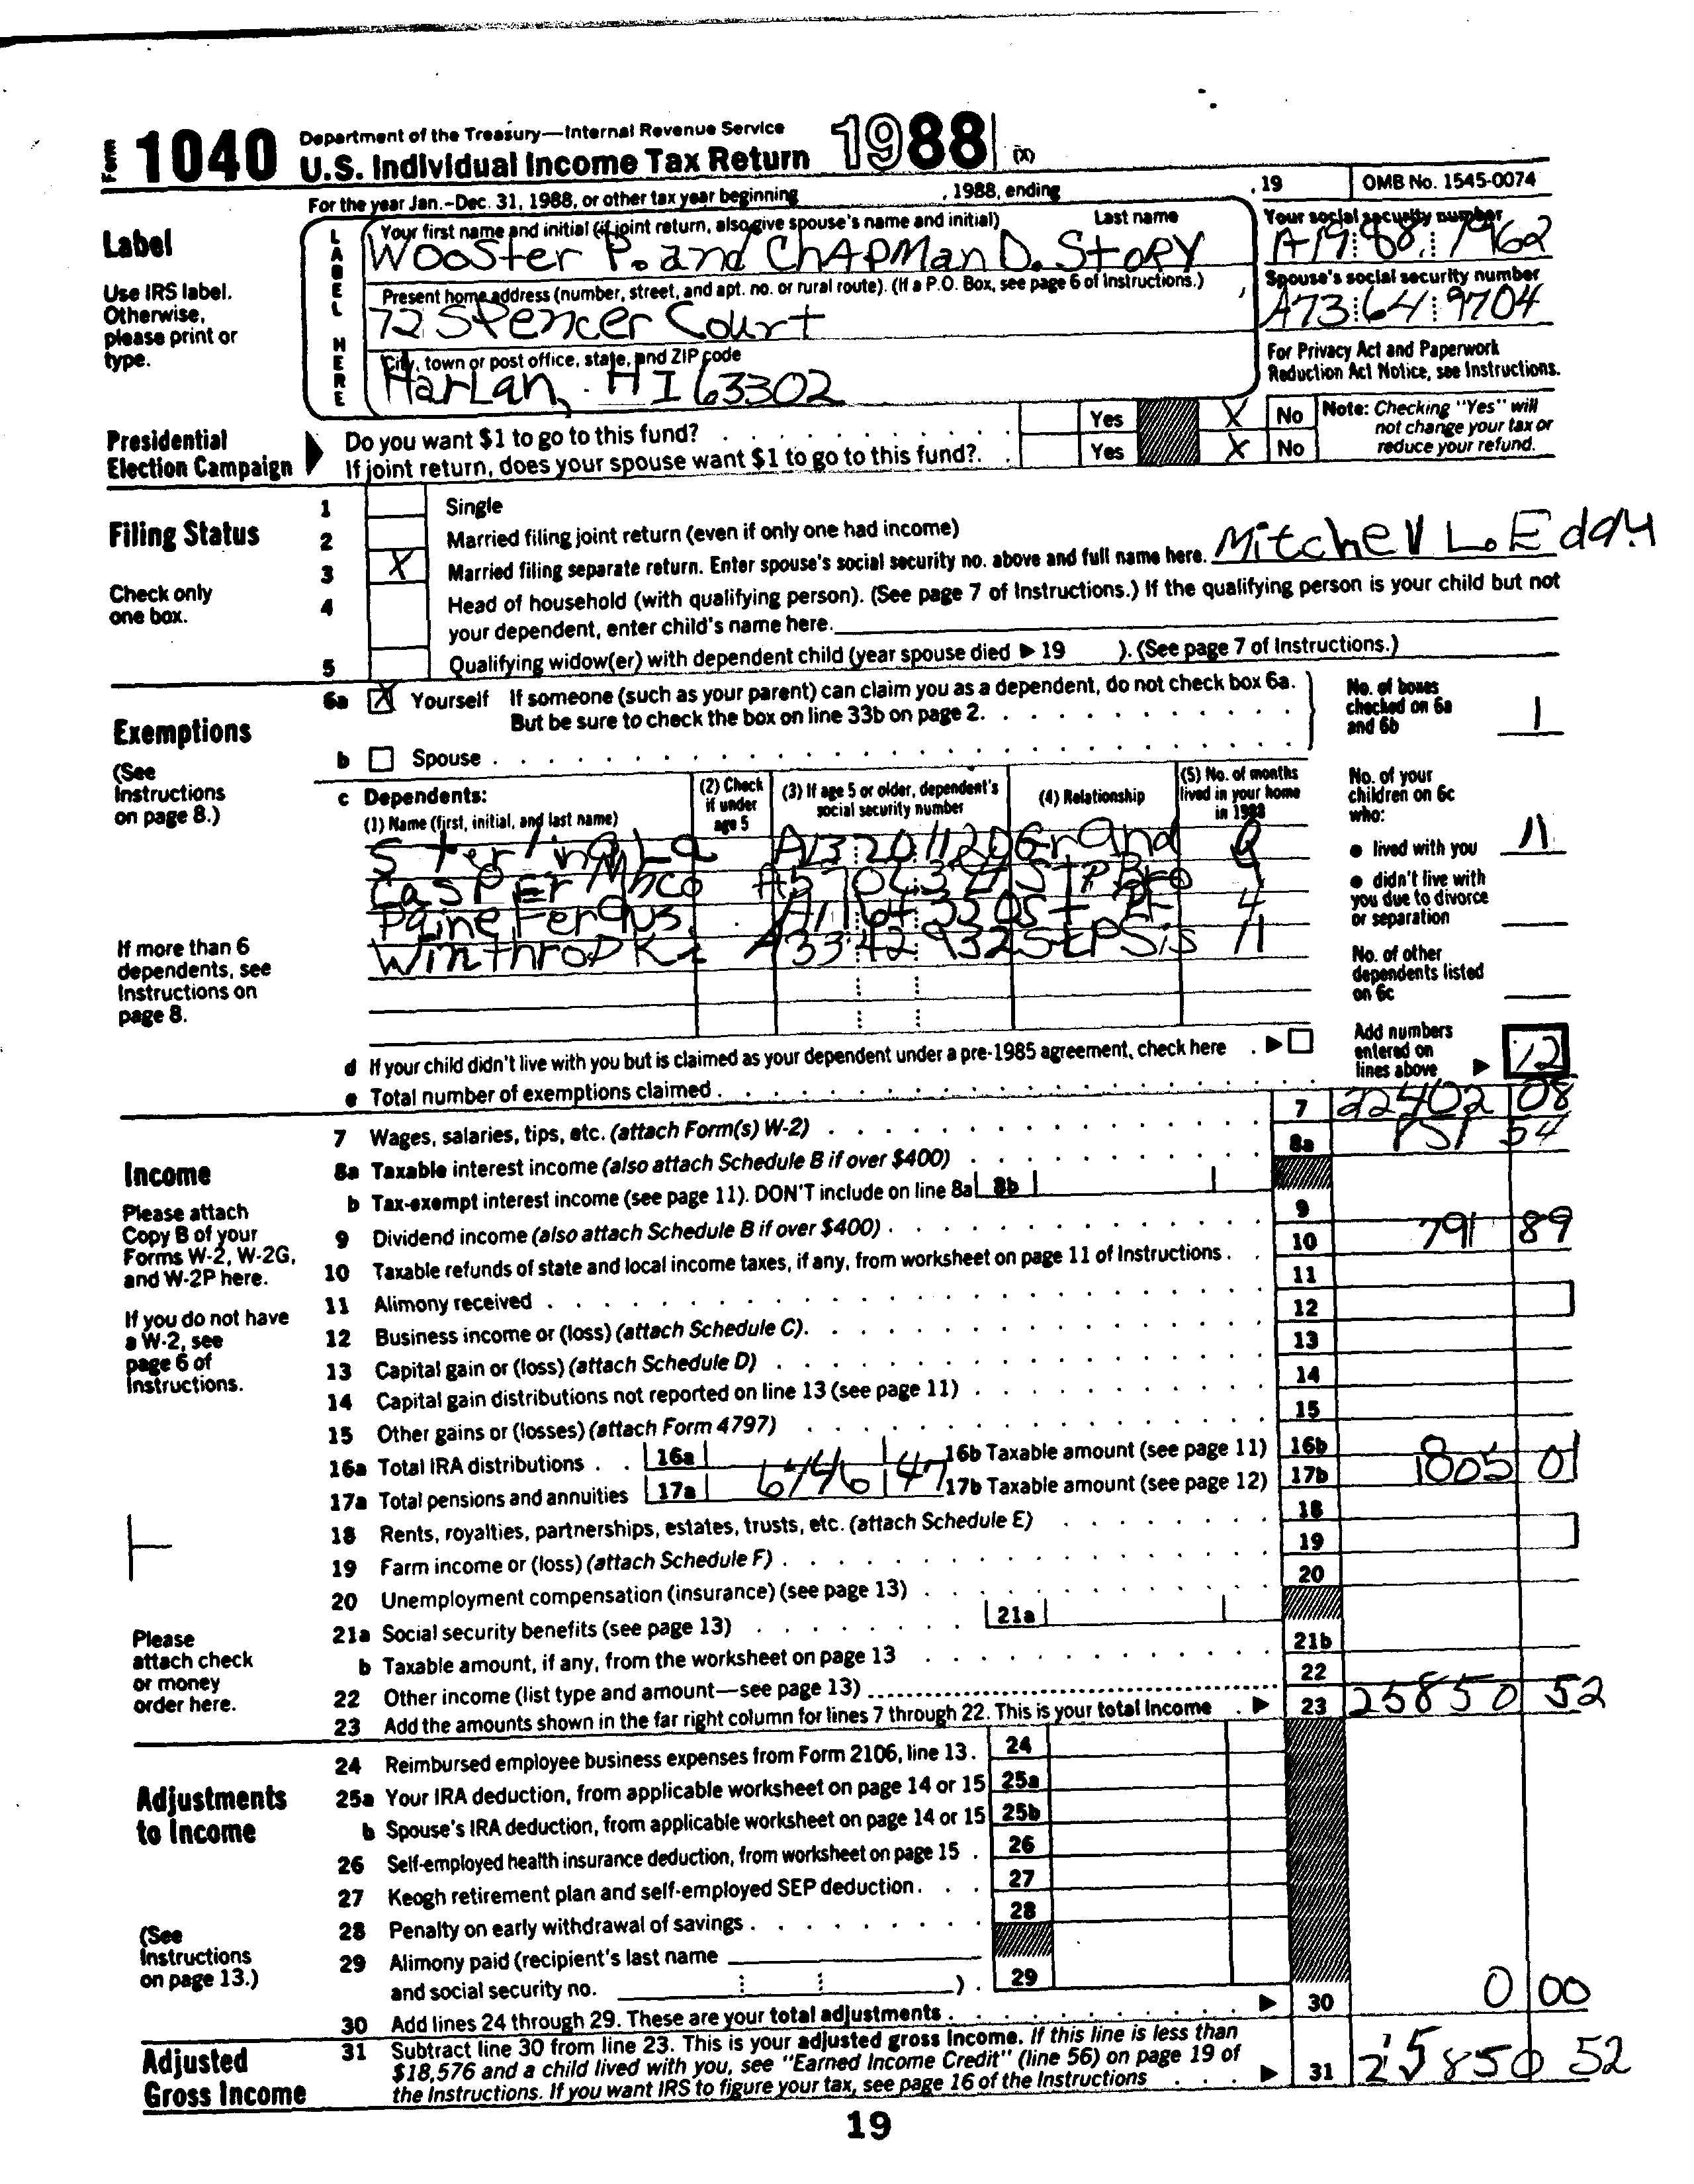 Form 1040 Department of the Treasury—Internal Revenue Service
U.S. Individual Income Tax Return 1988 (X)
For the year Jan.-Dec. 31, 1988, or other tax year beginning , 1988, ending , 19 OMB No. 1545-0074
Label
Use IRS label. Otherwise, please print or type.
LABEL HERE
Your first name and initial (if joint return, also give spouse's name and initial) Last name
Wooster P. and Chapman D. Story
Your social security number
A19 88 7962
Present home address (number, street, and apt. no. or rural route). (If a P.O. Box, see page 6 of Instructions.)
72 Spencer Court
Spouse's social security number
A73 64 9704
City, town or post office, state, and ZIP code
Harlan, HI 63302
For Privacy Act and Paperwork Reduction Act Notice, see Instructions.
Presidential Election Campaign
Do you want $1 to go to this fund? Yes X No
If joint return, does your spouse want $1 to go to this fund? Yes X No
Note: Checking "Yes" will not change your tax or reduce your refund.
Filing Status
Check only one box.
1 Single
2 Married filing joint return (even if only one had income)
3 X Married filing separate return. Enter spouse's social security no. above and full name here. Mitchell L. Eddy
4 Head of household (with qualifying person). (See page 7 of Instructions.) If the qualifying person is your child but not
your dependent, enter child's name here.
5 Qualifying widow(er) with dependent child (year spouse died ▶ 19 ). (See page 7 of Instructions.)
Exemptions
(See Instructions on page 8.)
6a X Yourself If someone (such as your parent) can claim you as a dependent, do not check box 6a.
But be sure to check the box on line 33b on page 2.
b Spouse
No. of boxes checked on 6a and 6b 1
c Dependents:
(1) Name (first, initial, and last name) (2) Check if under age 5 (3) If age 5 or older, dependent's social security number (4) Relationship (5) No. of months lived in your home in 1988
Sterling La A13 20 1120 Grand
Casper
Paine Fergus 4
Winthrop A33 42 9325 11
If more than 6 dependents, see Instructions on page 8.
No. of your children on 6c who:
● lived with you 11
● didn't live with you due to divorce or separation
No. of other dependents listed on 6c
d If your child didn't live with you but is claimed as your dependent under a pre-1985 agreement, check here ▶
e Total number of exemptions claimed
Add numbers entered on lines above ▶ 12
Income
Please attach Copy B of your Forms W-2, W-2G, and W-2P here.
If you do not have a W-2, see page 6 of Instructions.
Please attach check or money order here.
7 Wages, salaries, tips, etc. (attach Form(s) W-2) 7 22402 08
8a Taxable interest income (also attach Schedule B if over $400) 8a 151 54
b Tax-exempt interest income (see page 11). DON'T include on line 8a 8b
9 Dividend income (also attach Schedule B if over $400) 9
10 Taxable refunds of state and local income taxes, if any, from worksheet on page 11 of Instructions 10 791 89
11 Alimony received 11
12 Business income or (loss) (attach Schedule C) 12
13 Capital gain or (loss) (attach Schedule D) 13
14 Capital gain distributions not reported on line 13 (see page 11) 14
15 Other gains or (losses) (attach Form 4797) 15
16a Total IRA distributions 16a 16b Taxable amount (see page 11) 16b
17a Total pensions and annuities 17a 6746 47 17b Taxable amount (see page 12) 17b 1805 01
18 Rents, royalties, partnerships, estates, trusts, etc. (attach Schedule E) 18
19 Farm income or (loss) (attach Schedule F) 19
20 Unemployment compensation (insurance) (see page 13) 20
21a Social security benefits (see page 13) 21a
b Taxable amount, if any, from the worksheet on page 13 21b
22 Other income (list type and amount—see page 13) 22
23 Add the amounts shown in the far right column for lines 7 through 22. This is your total income ▶ 23 25850 52
Adjustments to Income
(See Instructions on page 13.)
24 Reimbursed employee business expenses from Form 2106, line 13. 24
25a Your IRA deduction, from applicable worksheet on page 14 or 15 25a
b Spouse's IRA deduction, from applicable worksheet on page 14 or 15 25b
26 Self-employed health insurance deduction, from worksheet on page 15 26
27 Keogh retirement plan and self-employed SEP deduction 27
28 Penalty on early withdrawal of savings 28
29 Alimony paid (recipient's last name
and social security no. ) 29
30 Add lines 24 through 29. These are your total adjustments ▶ 30 0 00
Adjusted Gross Income
31 Subtract line 30 from line 23. This is your adjusted gross income. If this line is less than
$18,576 and a child lived with you, see "Earned Income Credit" (line 56) on page 19 of
the Instructions. If you want IRS to figure your tax, see page 16 of the Instructions ▶ 31 25850 52
19